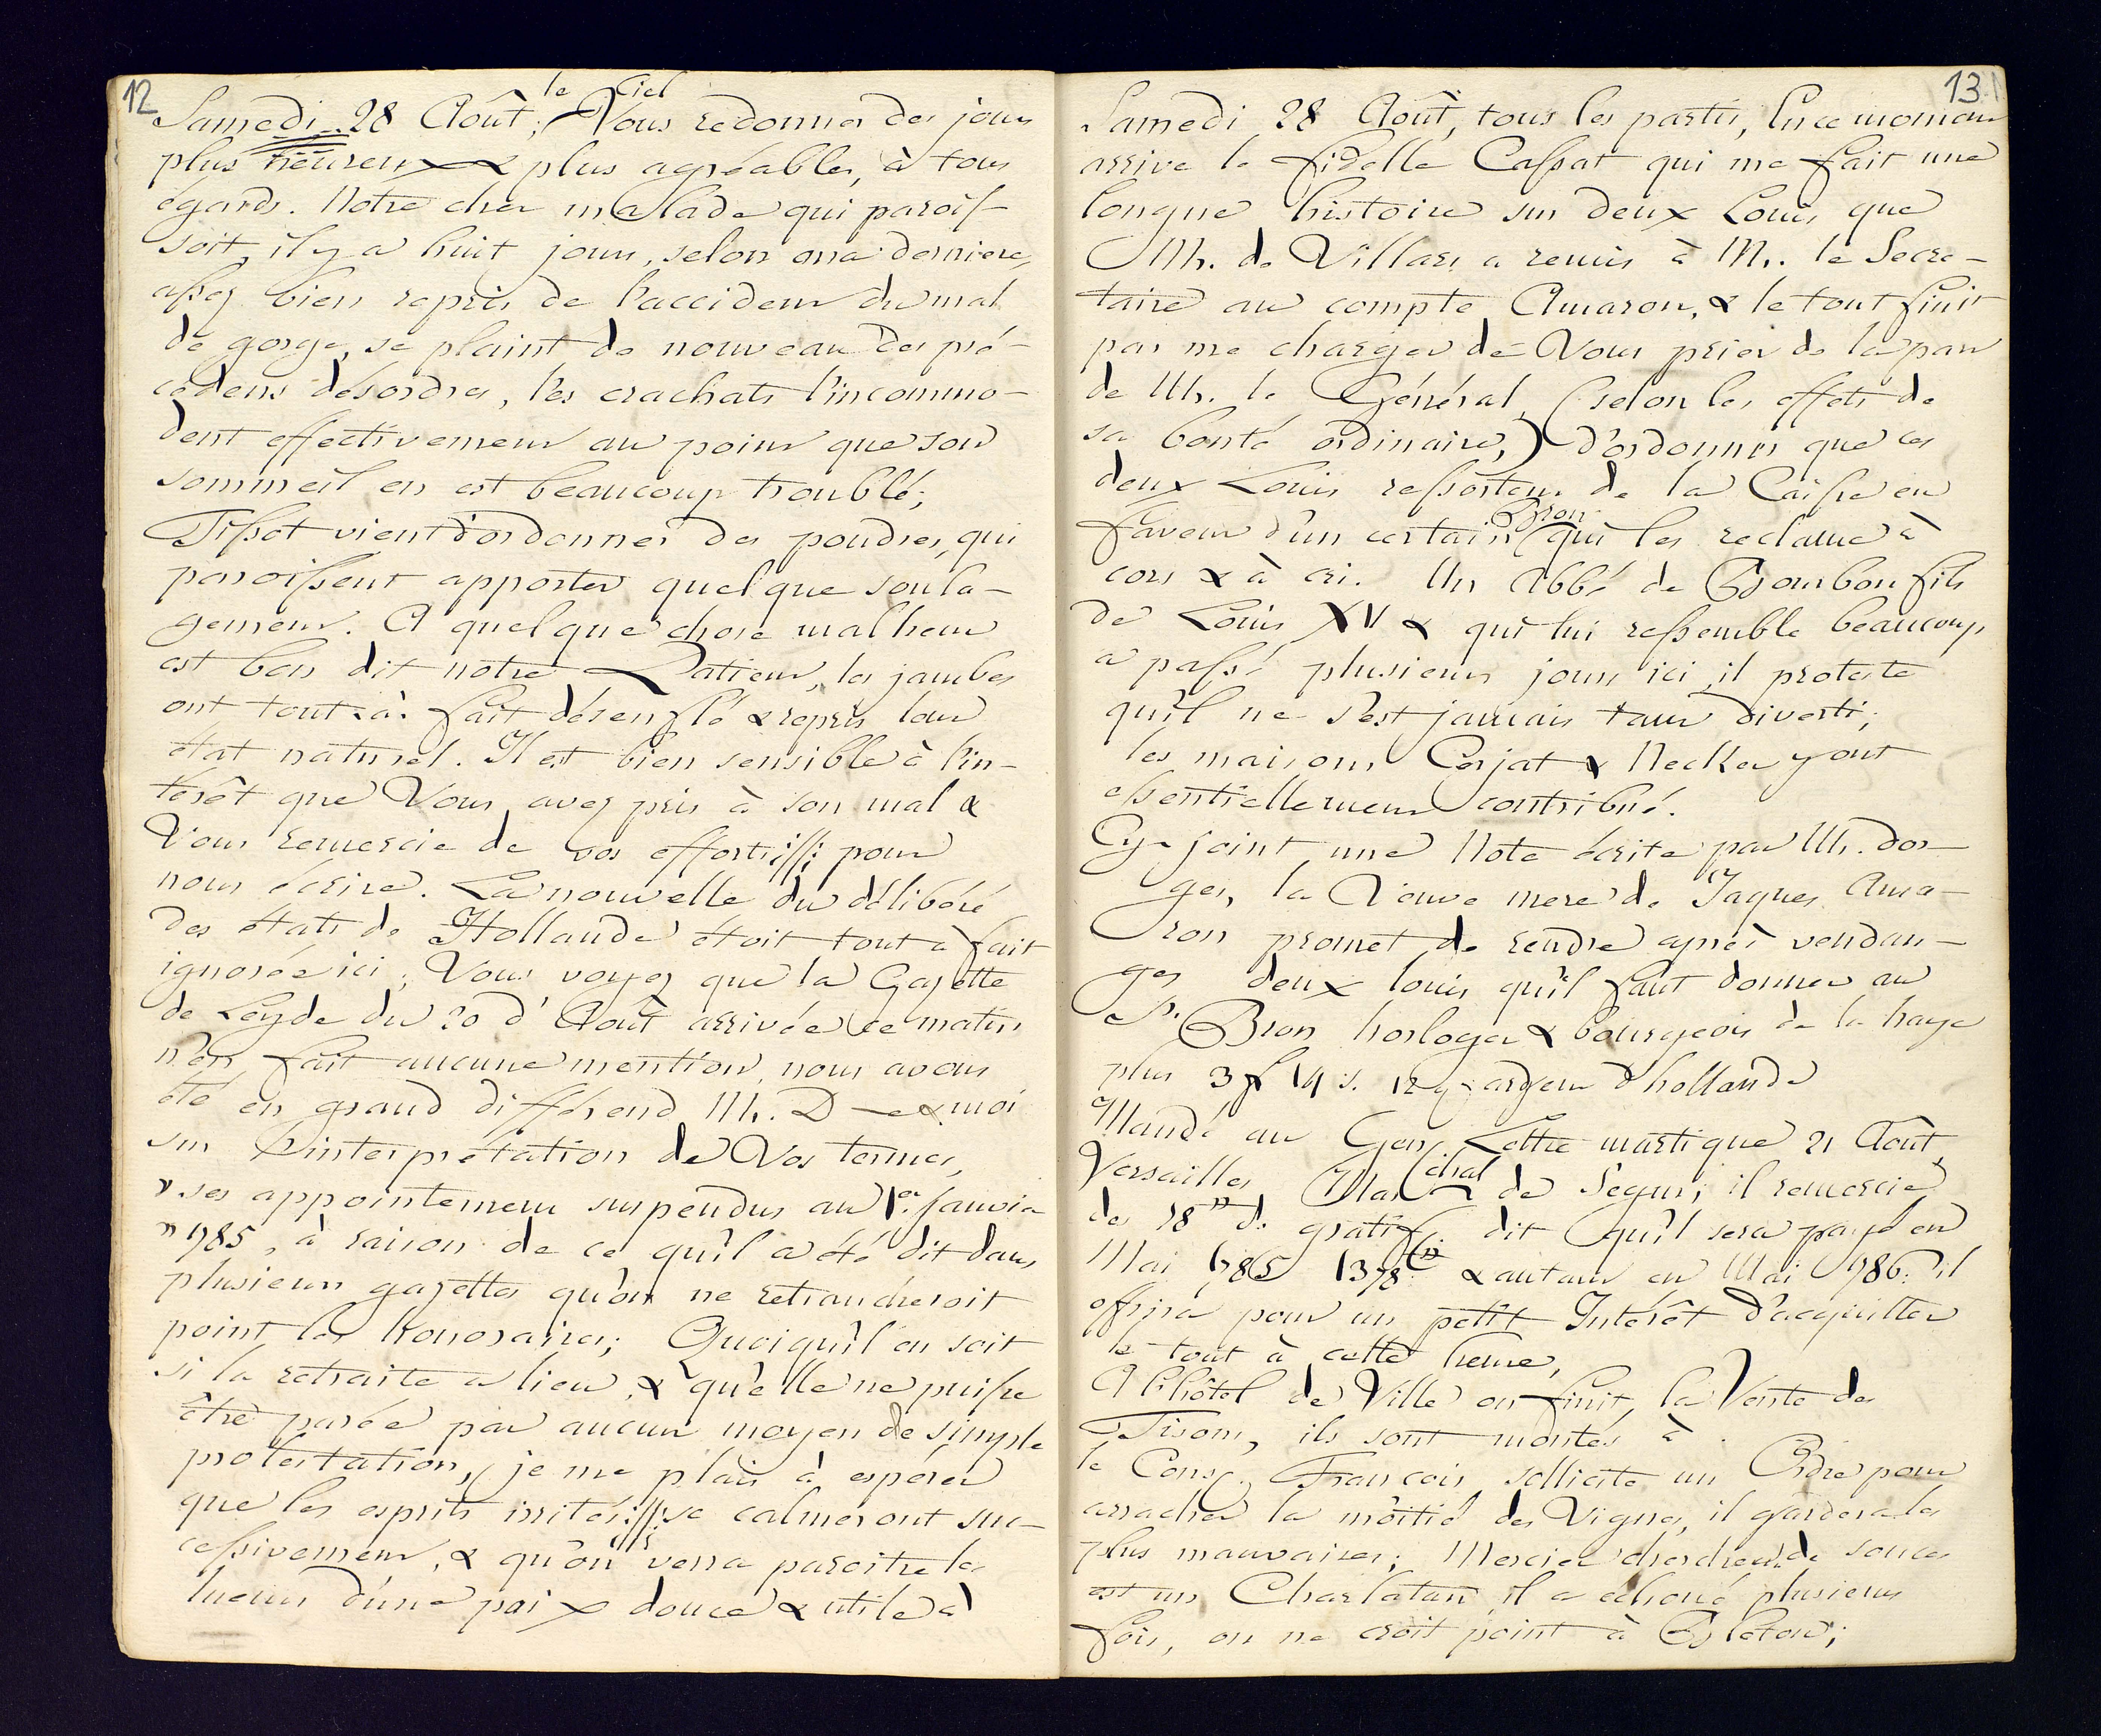 12
le Ciel
Samedi 28 Août; Vous redonner des jours
plus heureux & plus agréables, à tous
égards. Notre cher malade qui parois-
soit, il y a huit jours, selon ma derniere,
assez bien repris de l'accident du mal
de gorge, se plaint de nouveau des pré-
cédens désordres, les crachats l'incommo-
dent effectivement au point que son
sommeil en est beaucoup troublé;
Tissot vient d'ordonner des poudres, qui
paroissent apporter quelque soula-
gement. A quelque chose malheur
est bon dit notre Patient, les jambes
ont tout-à-fait désenflé & repris leur
état naturel. Il est bien sensible à l'in-
térêt que Vous avez pris à son mal &
Vous remercie de vos efforts pour
nous écrire. La nouvelle du délibéré
des états de Hollande étoit tout à fait
ignorée ici; Vous voyez que la Gazette
de Leyde du 20 d'Août arrivée ce matin
n'en fait aucune mention, nous avons
été en grand différend Mr. D & moi
sur l'interprétation de Vos termes,
" ses appointemens suspendus au 1er. Janvier
" 1785, à raison de ce qu'il a été dit dans
plusieurs gazettes qu'on ne retrancheroit
point les honoraires; Quoiqu'il en soit
si la retraite a lieu, & qu'elle ne puisse
être parée par aucun moyen de simple
protestation, je me plais à espérer
que les esprits irrités se calmeront suc-
cessivement, & qu'on verra paroitre les
lueurs d'une paix douce & utile à
13
Samedi 28 Août, tous les partis, En ce moment
arrive le fidelle Cassat qui me fait une
longue histoire sur deux Louis que
Mr. de Villars a remis à Mr. le Secre-
taire au compte Amaron, & le tout finit
par me charger de Vous prier de la part
de Mr. le Général, (selon les effets de
sa bonté ordinaire,) d'ordonner que ces
deux Louis ressortent de la Caisse en
Bron
faveur d'un certain qui les reclame à
cors & à cri. Un Abbé de Bourbon fils
de Louis XV & qui lui ressemble beaucoup
a passé plusieurs jours ici, il proteste
qu'il ne s'est jamais tant diverti;
les maisons Cerjat & Necker y ont
essentiellement contribué.
Cy-joint une Note écrite par Mr. Dor-
ges, la Veuve mere de Jaques Ama-
ron promet de rendre après vendan-
ges deux louis qu'il faut donner au
Sr. Bron horloger & bourgeois de la haye
plus 3 f 14 s. 12 argent d'hollande
Mandé au Gen. Lettre martique 21 Août
Versailles, Marchal de Segur; il remercie
des 18 d. gratif. dit qu'il sera payé en
Mai 1785 1378 & autant en Mai 1786. il
offrira pour un petit Intérêt d'acquitter
le tout à cette heure,
A l'hôtel de Ville on finit la Vente des
Tisons, ils sont montés à
le Cons. François sollicite un Ordre pour
arracher la moitié des Vignes, il gardera les
plus mauvaises; Mercier chercheur de sources
est un Charlatan, il a échoué plusieurs
fois, on ne croit point à Bleton;